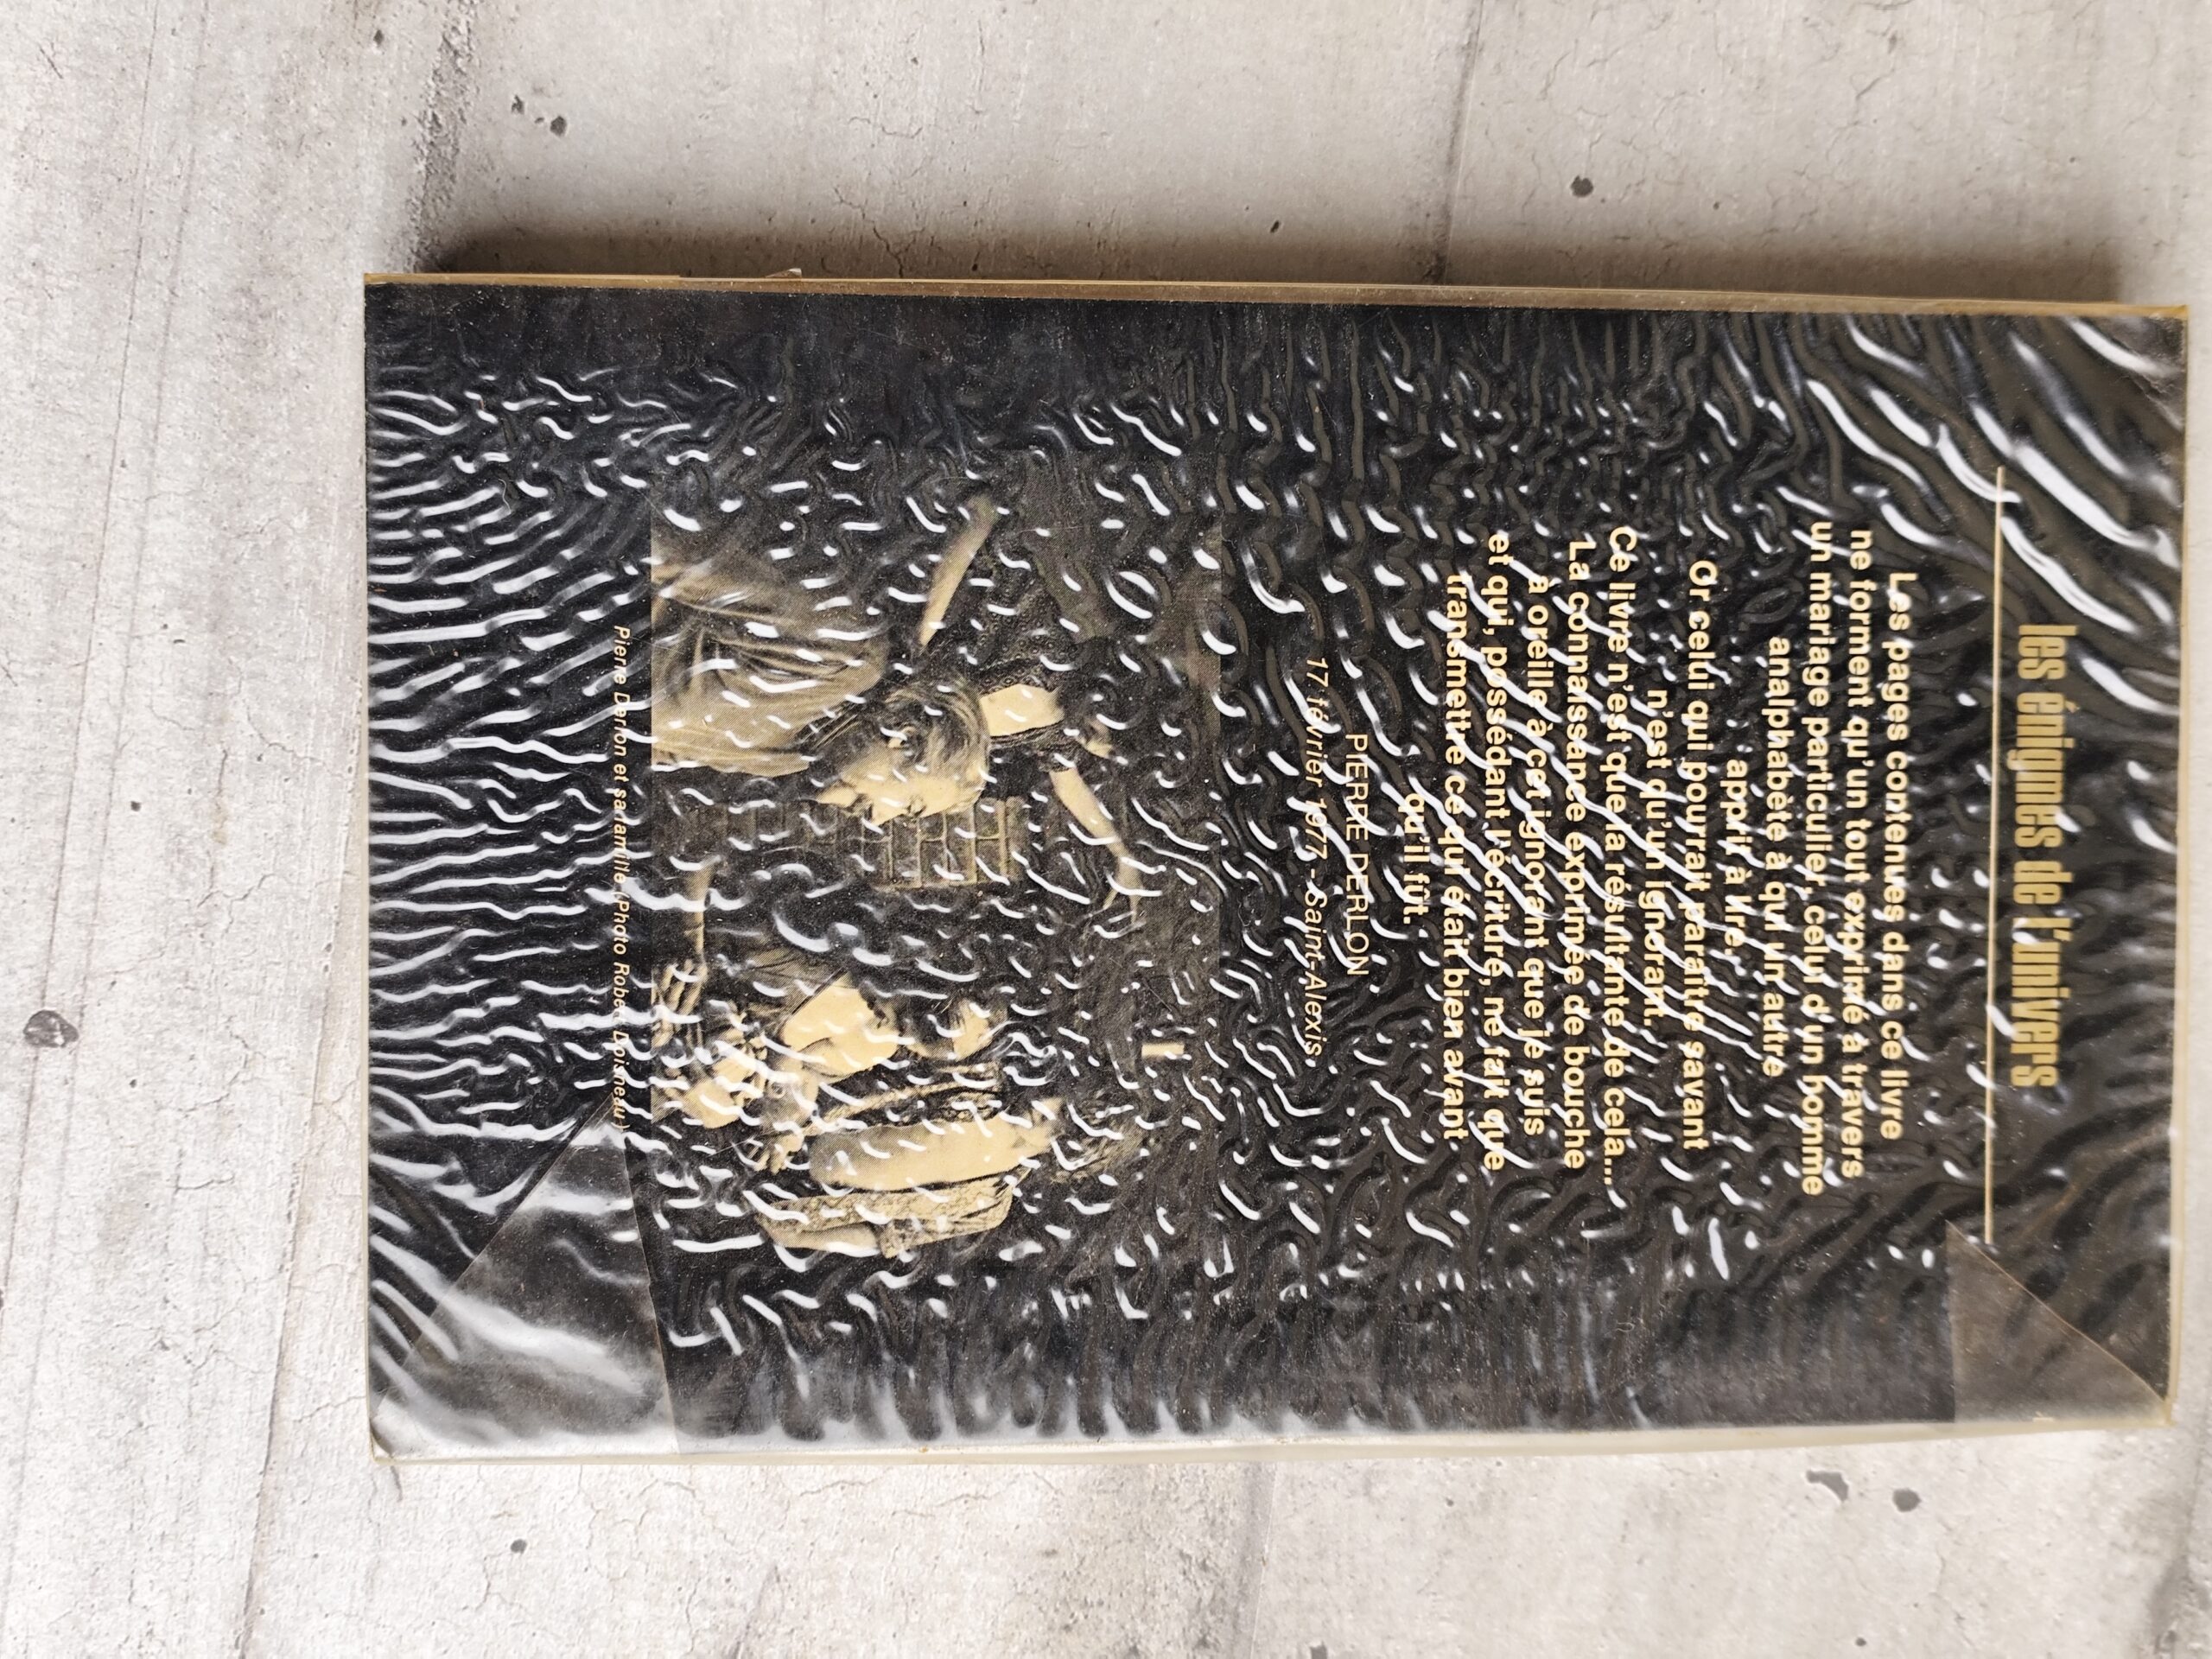 les énigmes de l'univers
Les pages contenues dans ce livre
ne forment qu'un tout exprimé à travers
un mariage particulier, celui d'un homme
analphabète à qui un autre
apprit à lire.
Or celui qui pourrait paraître savant
n'est qu'un ignorant.
Ce livre n'est que la résultante de cela...
La connaissance exprimée de bouche
à oreille à cet ignorant que je suis
et qui, possédant l'écriture, ne fait que
transmettre ce qui était bien avant
qu'il fût.
PIERRE DERLON
17 février 1977 - Saint-Alexis
Pierre Derlon et sa famille (Photo Robert Doisneau)